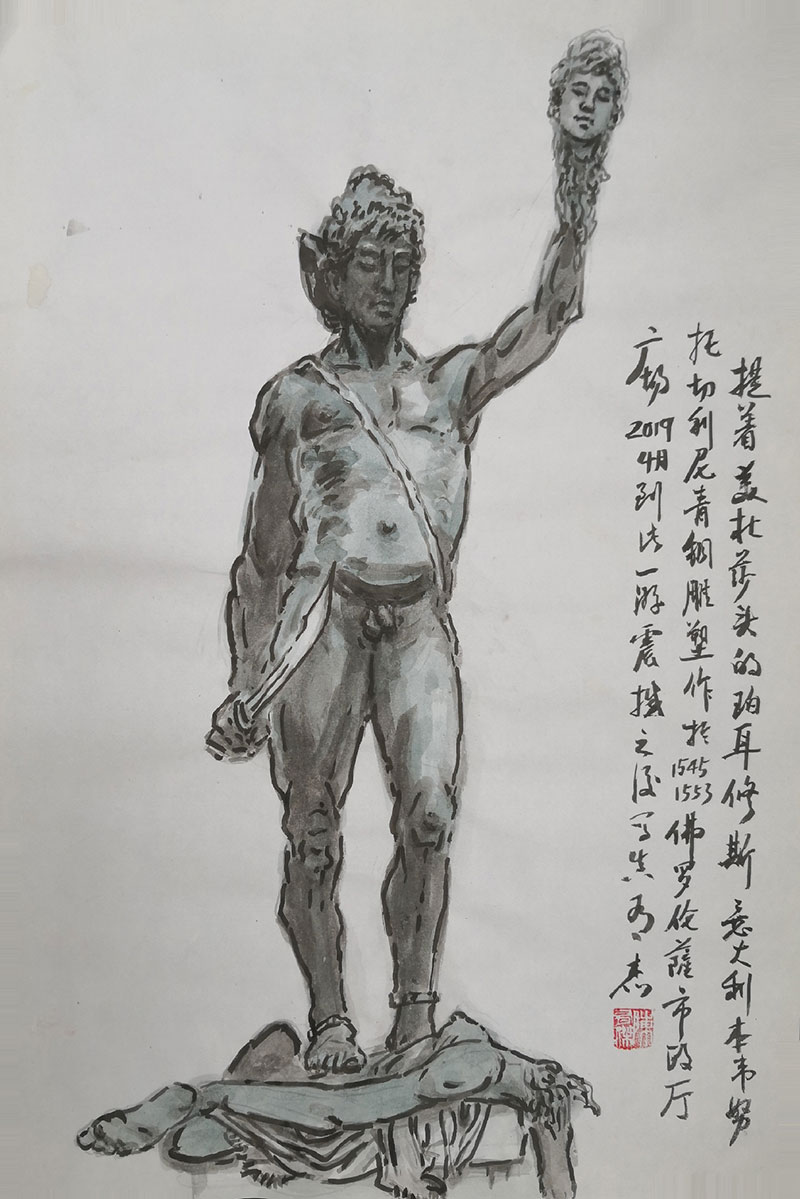 提着美杜莎头的珀耳修斯意大利本韦努
托切利尼青铜雕塑作于1545 1553佛罗伦萨市政厅
广场2019 4月到此一游震撼之后写生